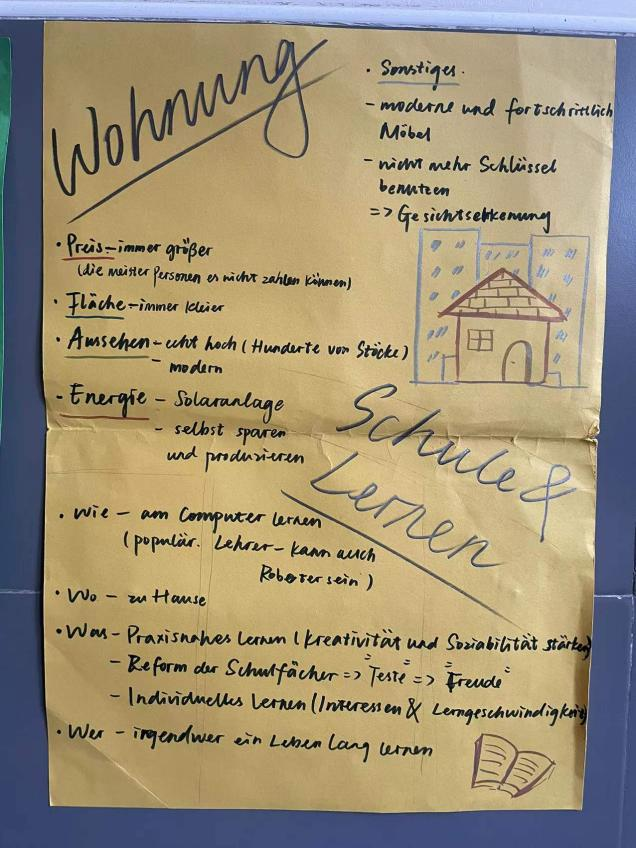 Wohnung
• Sonstiges.
- moderne und fortschrittlich
Möbel
- nicht mehr Schlüssel
benutzen
=> Gesichtserkennung
• Preis - immer größer
(die meister Personen es nicht zahlen können)
• Fläche - immer kleier
• Aussehen - echt hoch (Hunderte von Stöcke)
- modern
- Energie - Solaranlage
- selbst sparen
und produzieren
Schule &
Lernen
• Wie - am Computer lernen
(populär. Lehrer - kann auch
Roboter sein)
• Wo - zu Hause
• Was - Praxisnahes Lernen (Kreativität und Soziabilität stärken)
- Reform der Schulfächer => "Teste" => "Freude"
- Individuelles Lernen (Interessen & Lerngeschwindigkeit)
• Wer - irgendwer ein Leben lang lernen